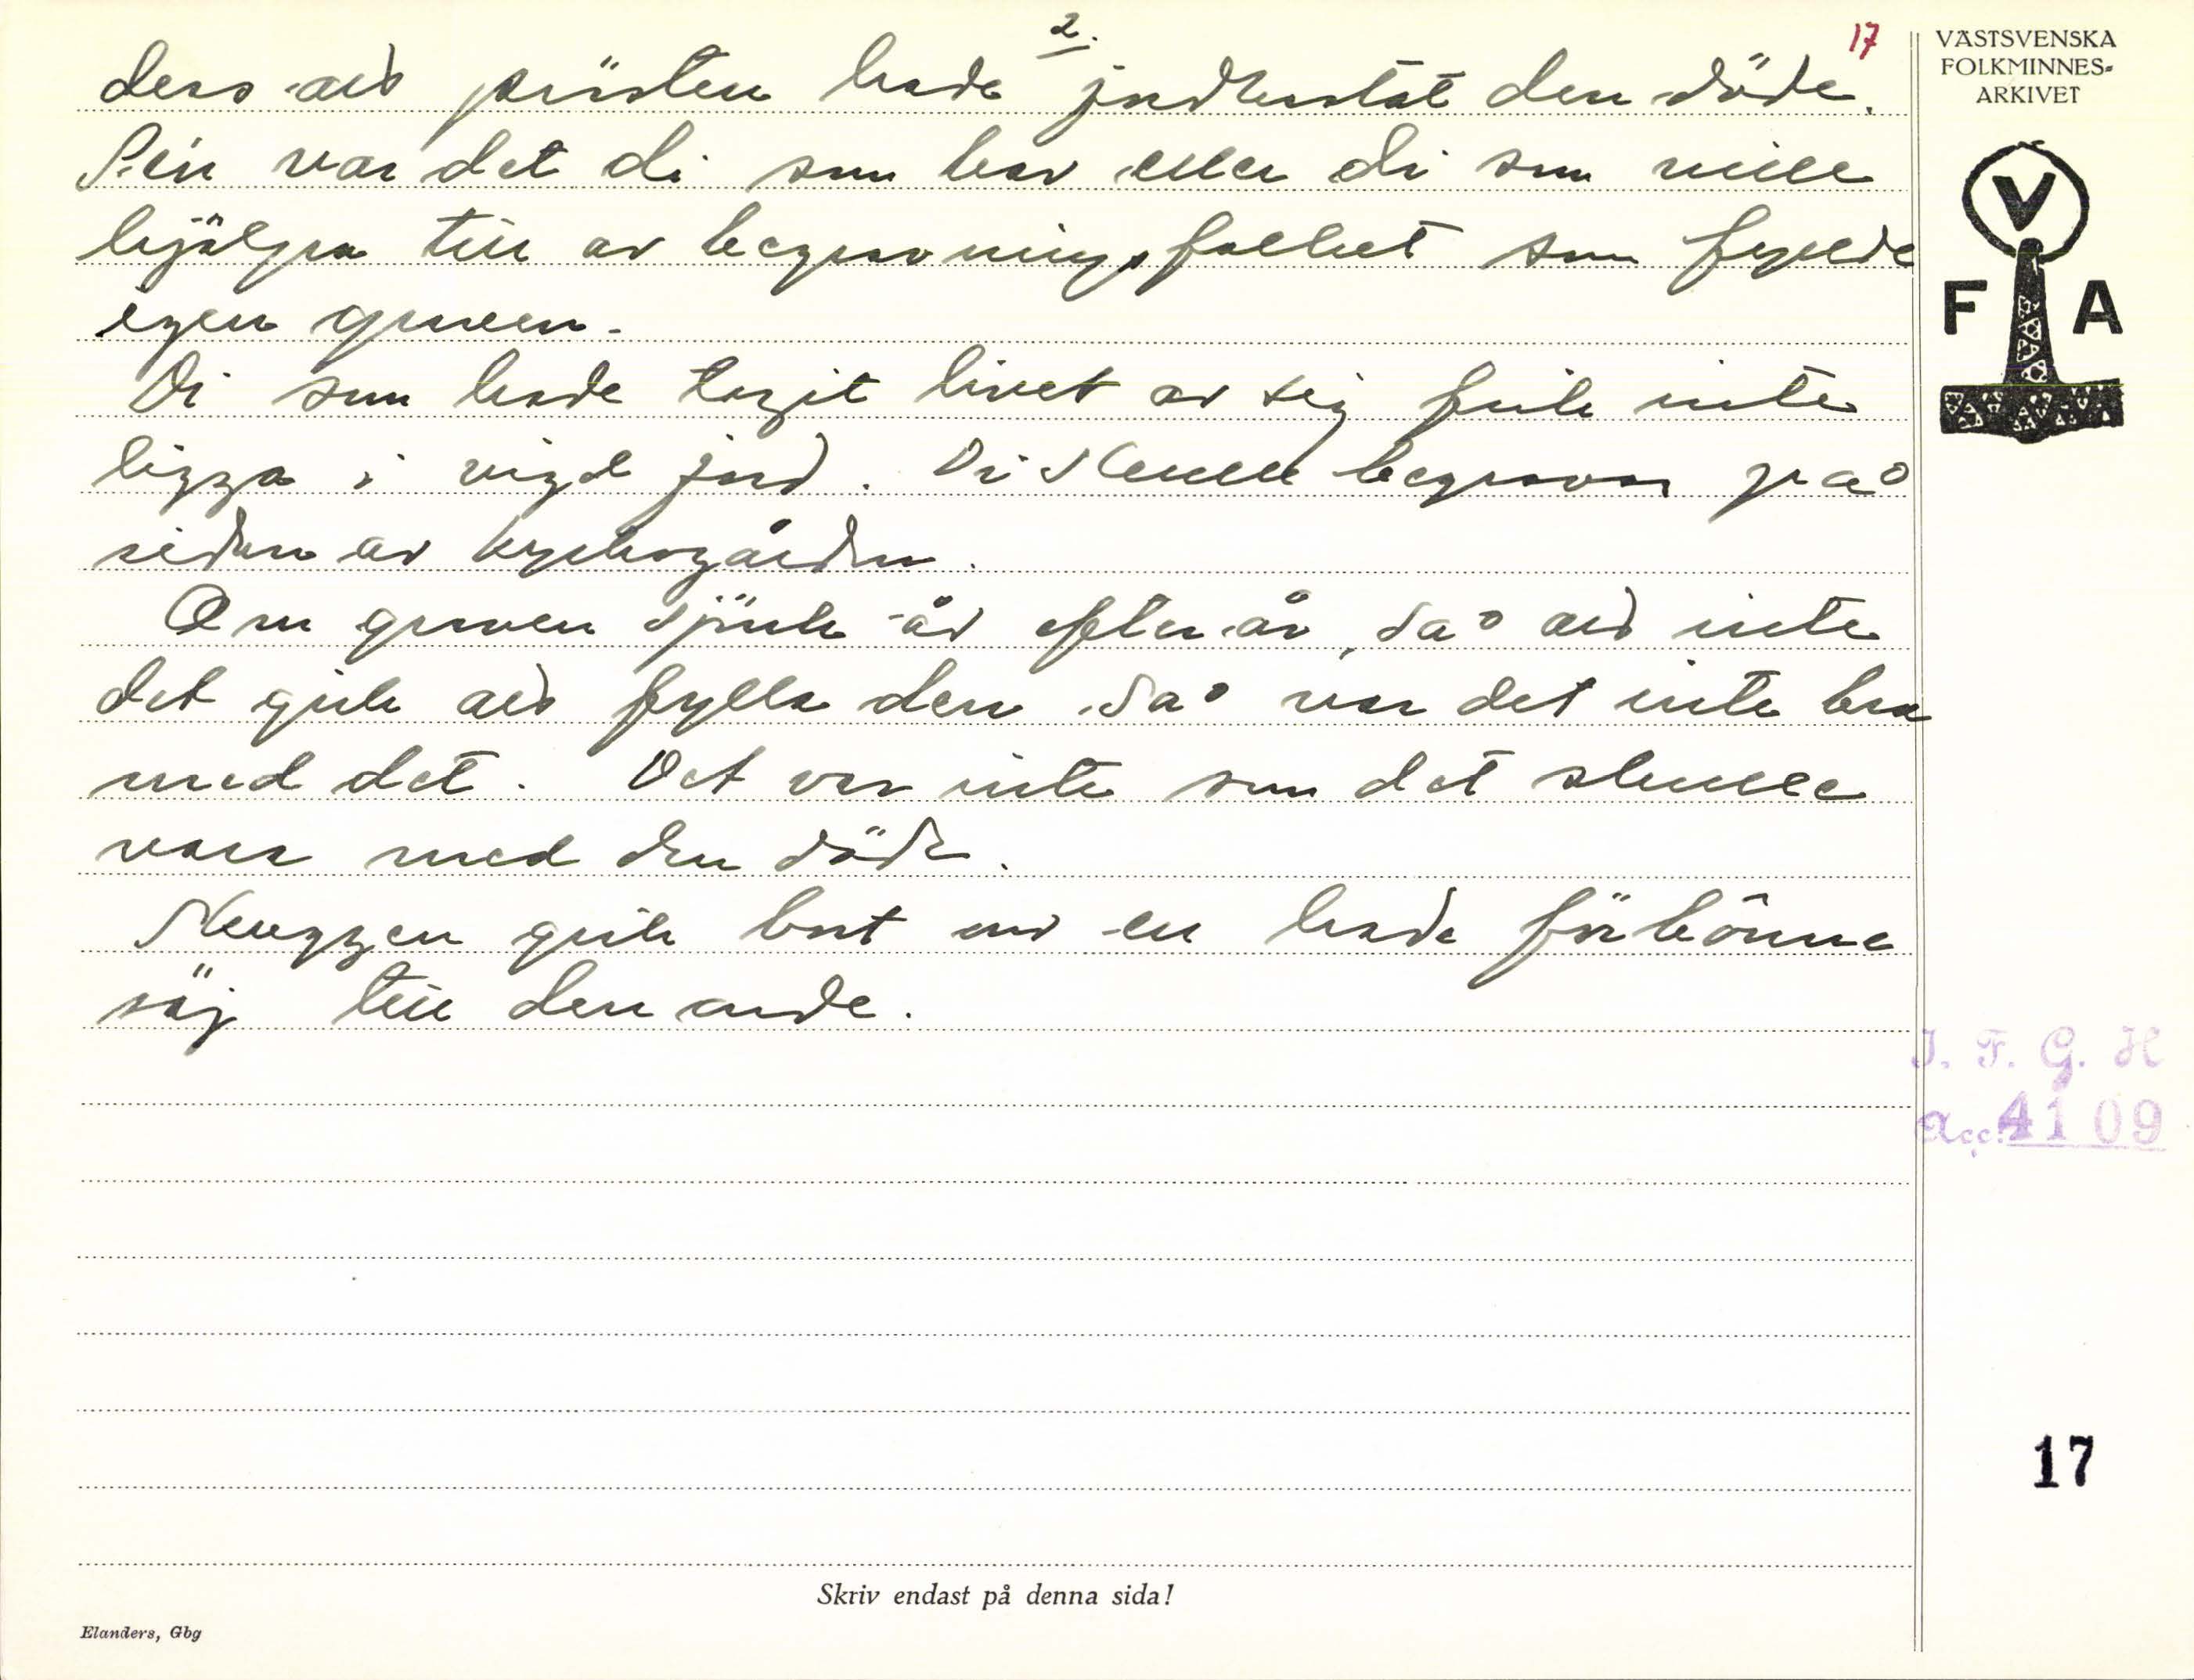 2.
17
ders att prästen hade jordkastat den döde.
Sen var det di som bar eller di som ville
hjälpa till av begravningsfolket som fyllde
igen graven.
Di som hade tagit livet av sig fick inte
ligga i vigd jord. Di skulle begravas på
sidan av kyrkogården.
Om graven sjönk år efter år, så att inte
det gick att fylla den så var det inte bra
med det. Det var inte som det skulle
vara med den döde.
Skuggen gick bort när en hade förbönne
säj till den ande.
VÄSTSVENSKA
FOLKMINNES-
ARKIVET
V
F A
I. F. G. H
Acc. 4109
17
Skriv endast på denna sida!
Elanders, Gbg